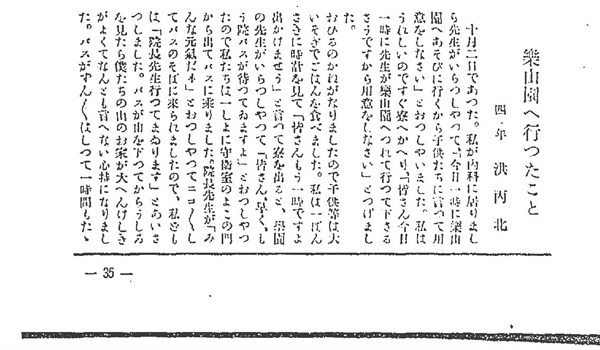 樂山園へ行つたこと
四年 洪丙北
十月二日であつた。私が内科に居りまし
ら先生がいらつしやつて、今日一時に樂山
園へあそびに行くから子供たちに言つて用
意をしなさい」とおつしやいました。私は
うれしいのですぐ寮へかへり、「皆さん今日
一時に先生が樂山園へつれて行つて下さる
さうですから用意をしなさい」とつげまし
た。
おひるのかねがなりましたので子供等は大
いそぎでごはんを食べました。私は一ばん
さきに時計を見て「皆さんもう一時ですよ
出かけませう」と言つて寮を出ると、學園
の先生がいらつしやつて「皆さん、早く、も
う院バスが待つてゐますよ」とおつしやつ
たので私たちは一しよに守衛室のよこの門
から出てバスに乘りました。院長先生が「み
んな元氣だネ」とおつしやつてニコ〱し
てバスのそばに來られましたので、私ども
は「院長先生行つてまゐります」とあいさ
つしました。バスが山を下つてからうしろ
を見たら僕たちの山のお家が大へんけしき
がよくてなんとも言へない心持になりまし
た。バスがずん〱はしつて一時間もたゝ
— 35 —